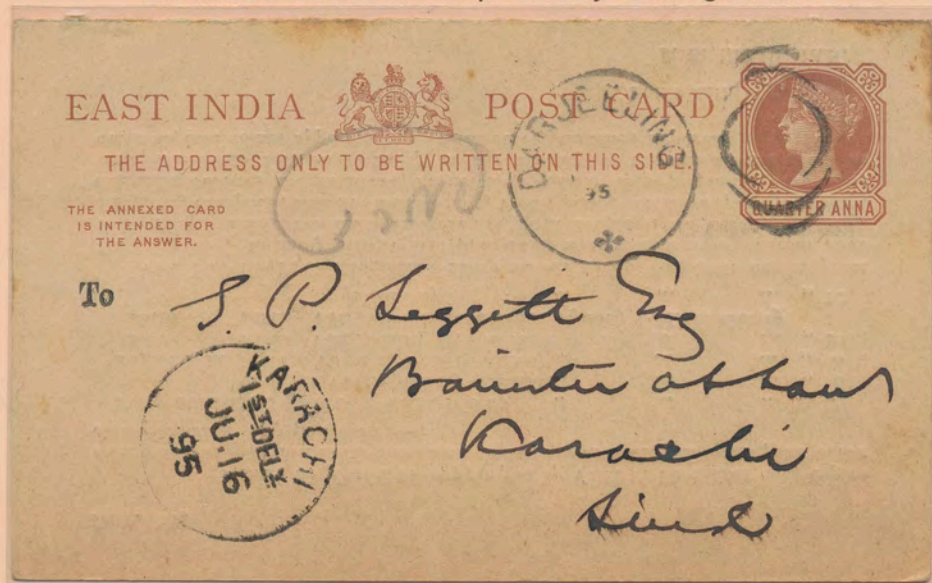 EAST INDIA POST CARD
THE ADDRESS ONLY TO BE WRITTEN ON THIS SIDE.
THE ANNEXED CARD
IS INTENDED FOR
THE ANSWER.
QUARTER ANNA
DARJEELING
95
To S. P. Leggett Esq
Barrister at Law
Karachi
Sind
KARACHI
1ST DELY
JU.16
95